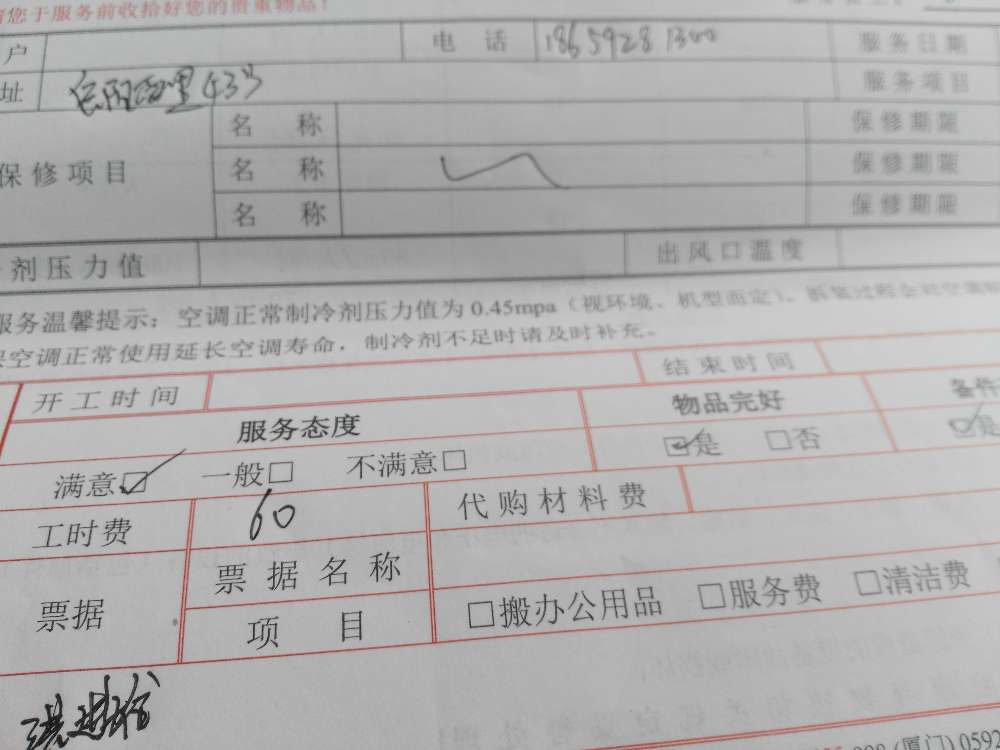 您于服务前收拾好您的贵重物品！
户 电话 18659281300 服务日期
址 43号 服务项目
保修项目 名称 保修期限
名称 保修期限
名称 保修期限
剂压力值 出风口温度
服务温馨提示：空调正常制冷剂压力值为0.45mpa（视环境、机型而定）。
空调正常使用延长空调寿命，制冷剂不足时请及时补充。
开工时间 结束时间
服务态度 物品完好 备件
满意☑ 一般□ 不满意□ ☑是 □否 ☑是
工时费 60 代购材料费
票据 票据名称
项目 □搬办公用品 □服务费 □清洁费
(厦门) 0592